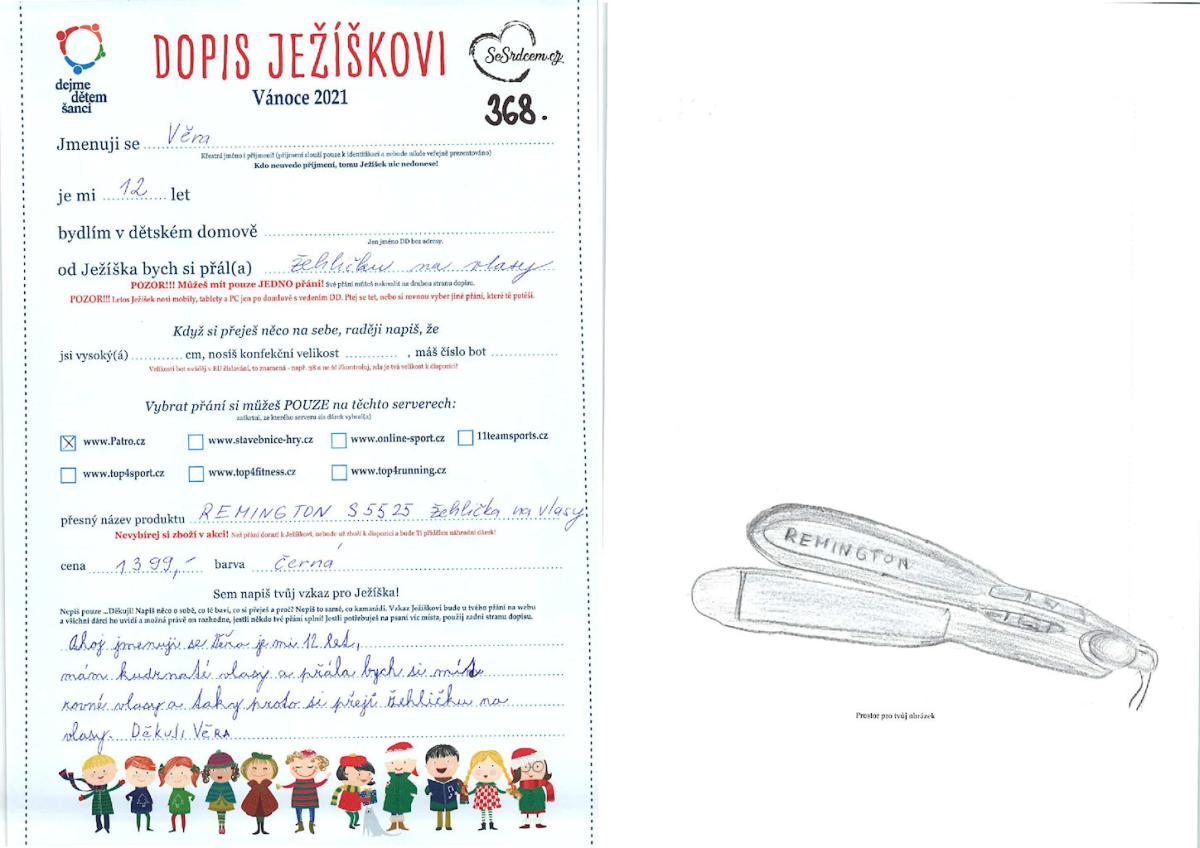 dejme
dětem
šanci
DOPIS JEŽÍŠKOVI
Vánoce 2021
SeSrdcem.cz
368.
Jmenuji se Věra
Křestní jméno i příjmení! (příjmení slouží pouze k identifikaci a nebude nikde veřejně prezentováno)
Kdo neuvede příjmení, tomu Ježíšek nic nedonese!
je mi 12 let
bydlím v dětském domově
Jen jméno DD bez adresy.
od Ježíška bych si přál(a) žehličku na vlasy
POZOR!!! Můžeš mít pouze JEDNO přání! Své přání můžeš nakreslit na druhou stranu dopisu.
POZOR!!! Letos Ježíšek nosí mobily, tablety a PC jen po domluvě s vedením DD. Ptej se tet, nebo si rovnou vyber jiné přání, které tě potěší.
Když si přeješ něco na sebe, raději napiš, že
jsi vysoký(á) cm, nosíš konfekční velikost , máš číslo bot
Velikosti bot uváděj v EU číslování, to znamená - např. 38 a ne 6! Zkontroluj, zda je tvá velikost k dispozici!
Vybrat přání si můžeš POUZE na těchto serverech:
zaškrtni, ze kterého serveru sis dárek vybral(a)
www.Patro.cz www.stavebnice-hry.cz www.online-sport.cz 11teamsports.cz
www.top4sport.cz www.top4fitness.cz www.top4running.cz
přesný název produktu REMINGTON S5525 žehlička na vlasy
Nevybírej si zboží v akci! Než přání dorazí k Ježíškovi, nebude už zboží k dispozici a bude Ti přidělen náhradní dárek!
cena 1399,- barva Černá
Sem napiš tvůj vzkaz pro Ježíška!
Nepiš pouze ...Děkuji! Napiš něco o sobě, co tě baví, co si přeješ a proč? Nepiš to samé, co kamarádi. Vzkaz Ježíškovi bude u tvého přání na webu
a všichni dárci ho uvidí a možná právě on rozhodne, jestli někdo tvé přání splní! Jestli potřebuješ na psaní víc místa, použij zadní stranu dopisu.
Ahoj jmenuji se Věra je mi 12 let,
mám kudrnaté vlasy a přála bych si mít
rovné vlasy a taky proto si přeji žehličku na
vlasy. Děkuji Věra
REMINGTON
Prostor pro tvůj obrázek